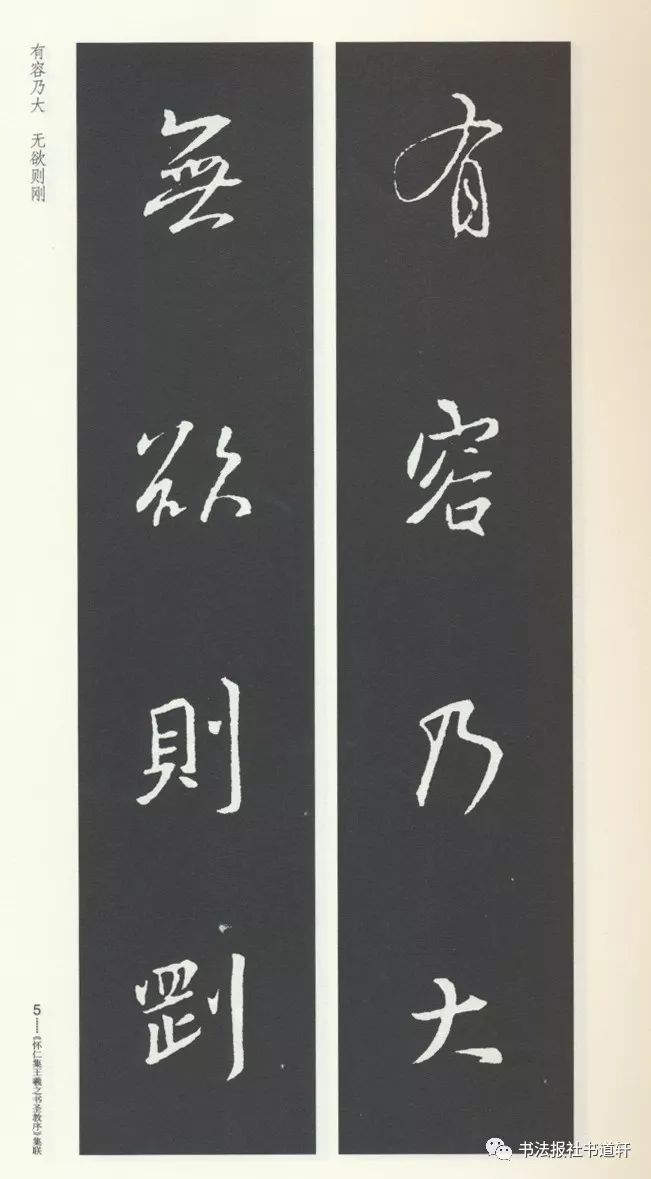 有容乃大
無欲則剛
有容乃大 无欲则刚
5……《怀仁集王羲之书圣教序》集联
书法报社书道轩